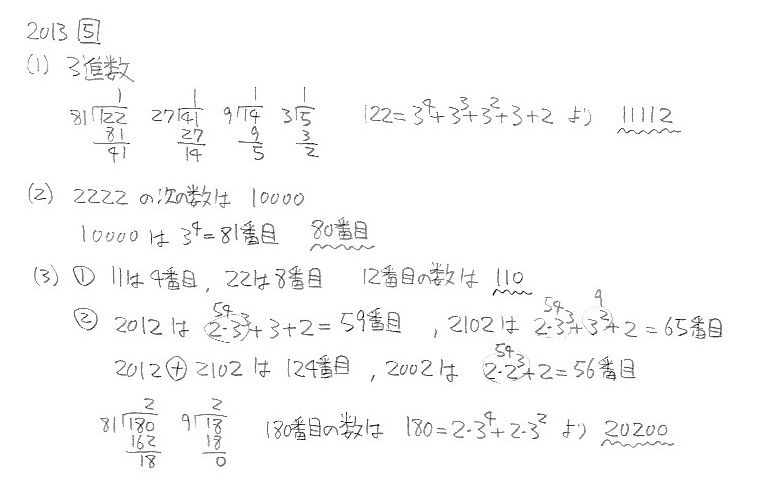 2013 5
(1) 3進数
1 1 1 1
81)122 27)41 9)14 3)5 122=3⁴+3³+3²+3+2 より 11112
81 27 9 3
41 14 5 2
(2) 2222 の次の数は 10000
10000 は 3⁴=81番目 80番目
(3) ① 11は4番目, 22は8番目 12番目の数は 110
54 54 9
② 2012 は 2・3³+3+2=59番目 , 2102 は 2・3³+3²+2=65番目
54
2012⊕2102 は 124番目 , 2002は 2・2³+2=56番目
2 2
81)180 9)18 180番目の数は 180=2・3⁴+2・3² より 20200
162 18
18 0